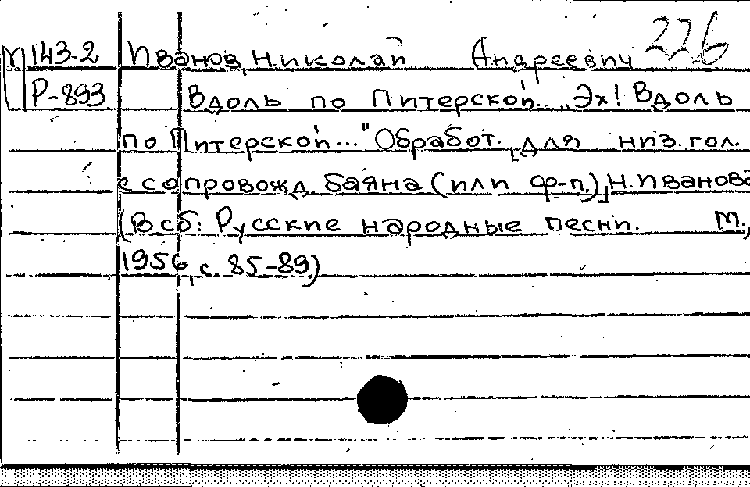 226
М 143-2 Иванов, Николай Андреевич
Р-893 Вдоль по Питерской... „Эх! Вдоль
по Питерской..." Обработ. [для низ. гол.
с сопровожд. баяна (или ф-п.)] Н. Иванова
(В сб: Русские народные песни. М.,
1956, с. 85-89)